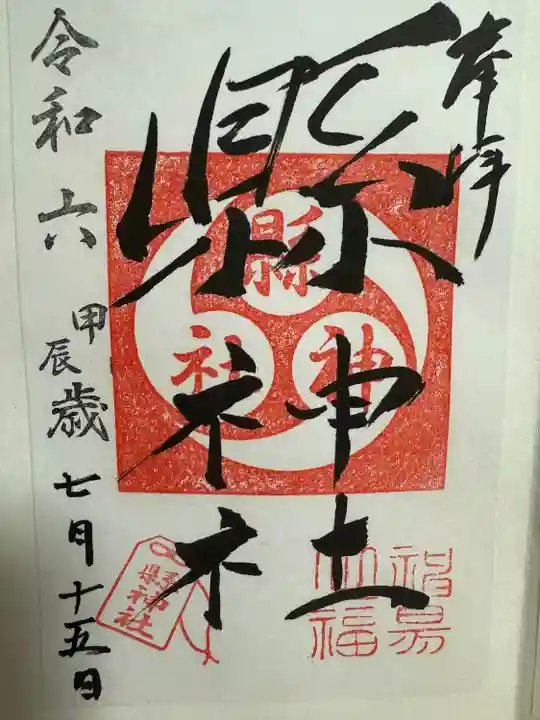 奉拝
縣神社
令和六甲辰歳七月十五日
縣
神
社
県神社